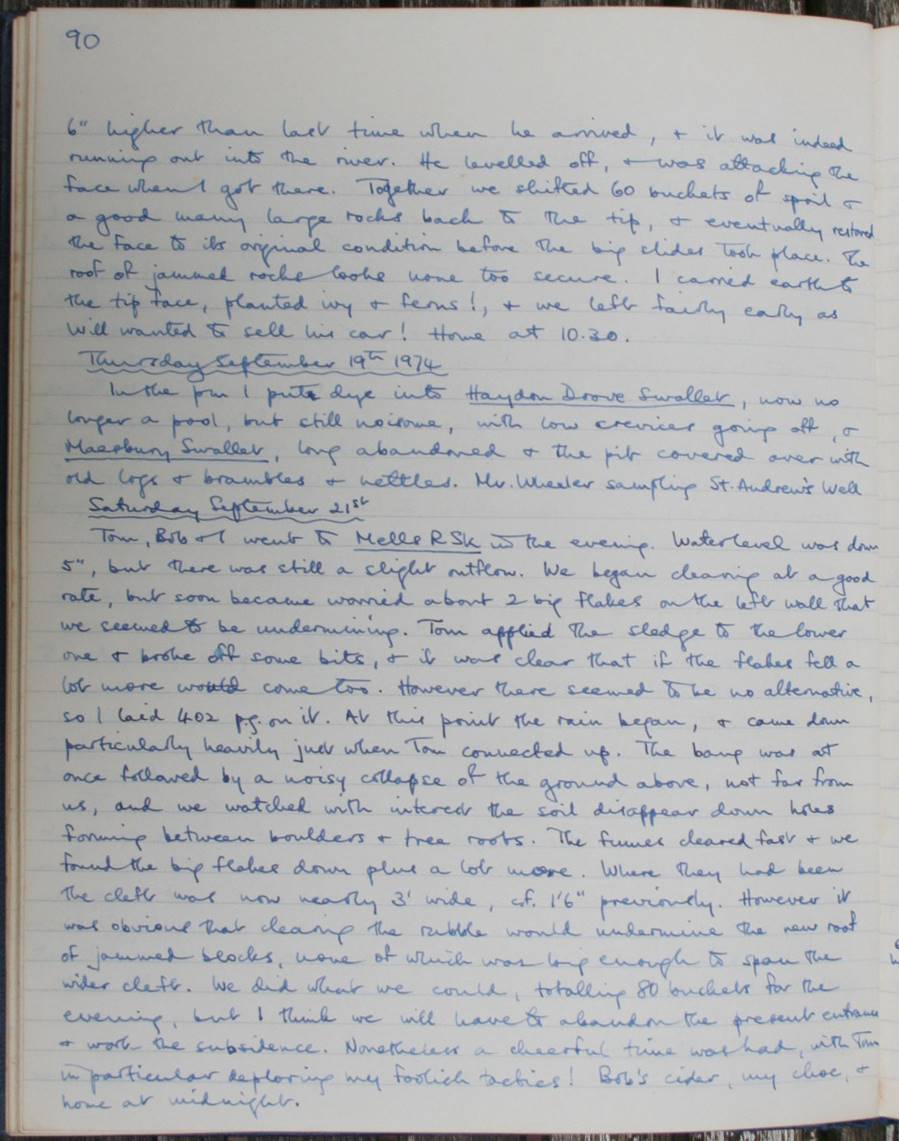 90
6" higher than last time when he arrived, + it was indeed
running out into the river. He levelled off, + was attacking the
face when I got there. Together we shifted 60 buckets of spoil +
a good many large rocks back to the tip, + eventually restored
the face to its original condition before the big slides took place. The
roof of jammed rocks looks none too secure. I carried earth to
the tip face, planted ivy + ferns!, + we left fairly early as
Will wanted to sell his car! Home at 10.30.
Thursday September 19th 1974
In the pm I put dye into Haydon Drove Swallet, now no
longer a pool, but still noisome, with low crevices going off, +
Maesbury Swallet, long abandoned + the pit covered over with
old logs + brambles + nettles. Mr. Wheeler sampling St. Andrew's Well
Saturday September 21st
Tom, Bob + I went to Mells R Sk in the evening. Water level was down
5", but there was still a slight outflow. We began clearing at a good
rate, but soon became worried about 2 big flakes on the left wall that
we seemed to be undermining. Tom applied the sledge to the lower
one + broke off some bits, + it was clear that if the flakes fell a
lot more would come too. However there seemed to be no alternative,
so I laid 4oz p.g. on it. At this point the rain began, + came down
particularly heavily just when Tom connected up. The bang was at
once followed by a noisy collapse of the ground above, not far from
us, and we watched with interest the soil disappear down holes
forming between boulders + tree roots. The fumes cleared fast + we
found the big flakes down plus a lot more. Where they had been
the cleft was now nearly 3' wide, c.f. 1'6" previously. However it
was obvious that clearing the rubble would undermine the new roof
of jammed blocks, none of which was long enough to span the
wider cleft. We did what we could, totalling 80 buckets for the
evening, but I think we will have to abandon the present entrance
+ work the subsidence. Nonetheless a cheerful time was had, with Tom
in particular deploring my foolish tactics! Bob's cider, my choc, +
home at midnight.